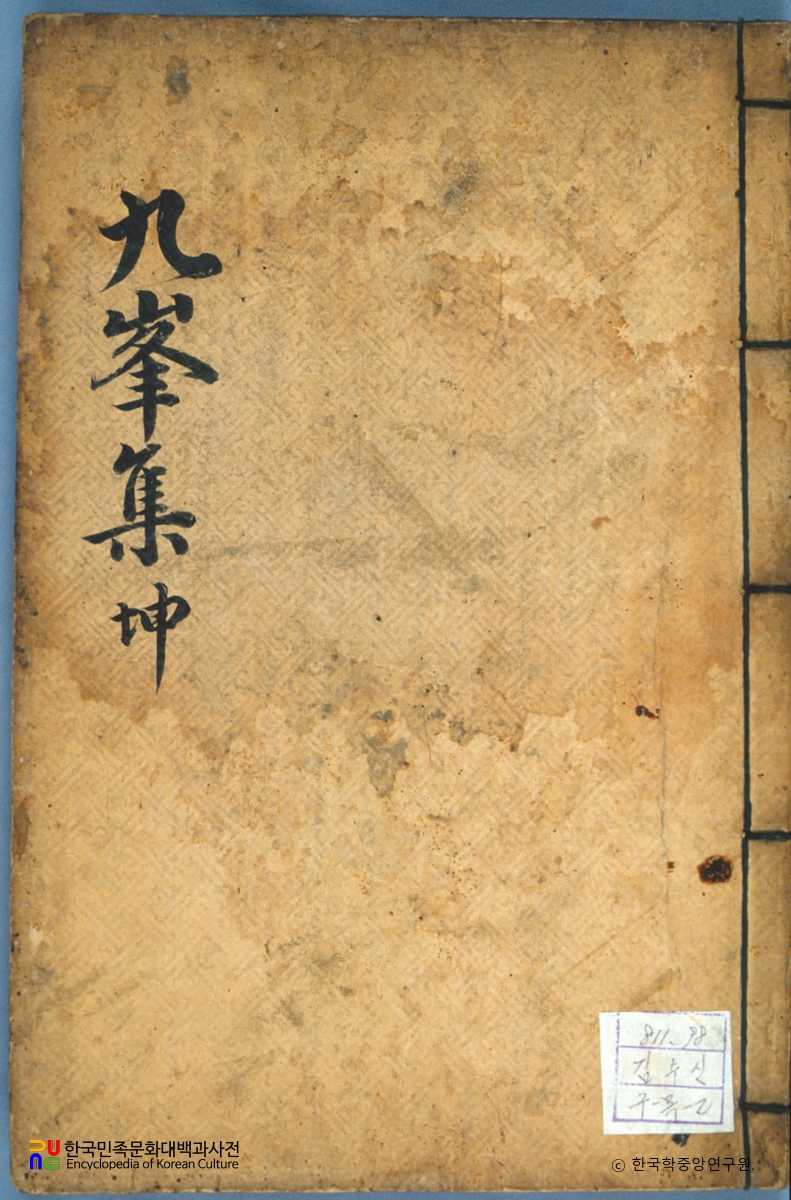 九峯集 坤
811.98
김수신
한국민족문화대백과사전
Encyclopedia of Korean Culture
© 한국학중앙연구원.